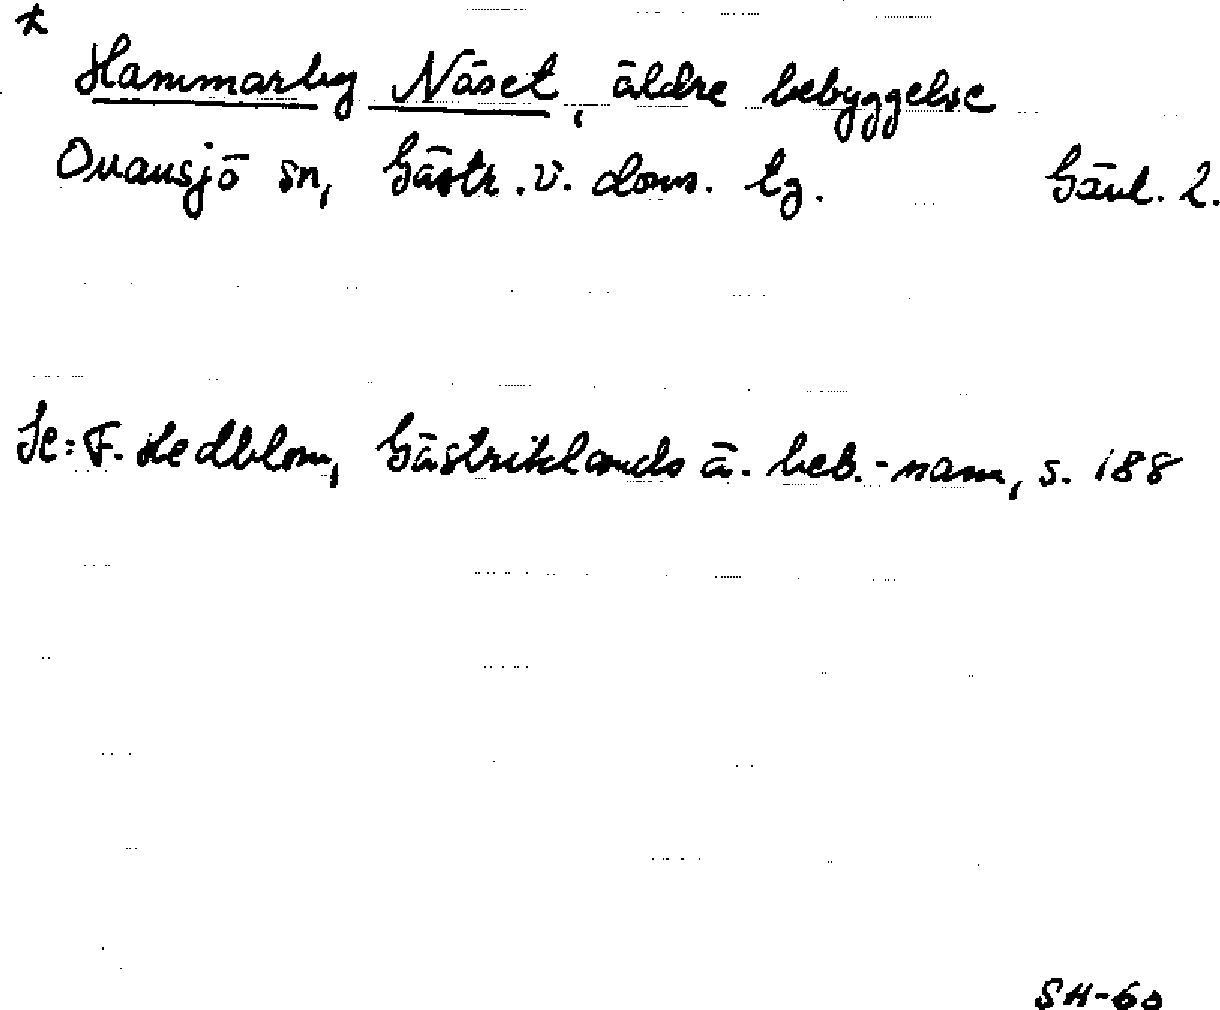 *
Hammarby Näset, äldre bebyggelse
Ovansjö sn, Gästr. v. doms. tg. Gävl. l.
Se: F. Hedblom, Gästriklands ä. beb.-namn, s. 188
SH-60